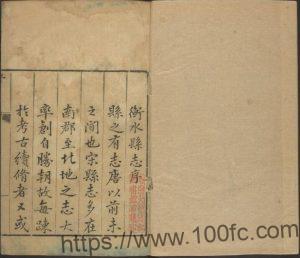 衡水縣志序
縣之有志唐以前未
之聞也宋縣志多在
南郡至北地之志大
率創自勝朝故每疎
於考古續脩者又或
https://www.100fc.com